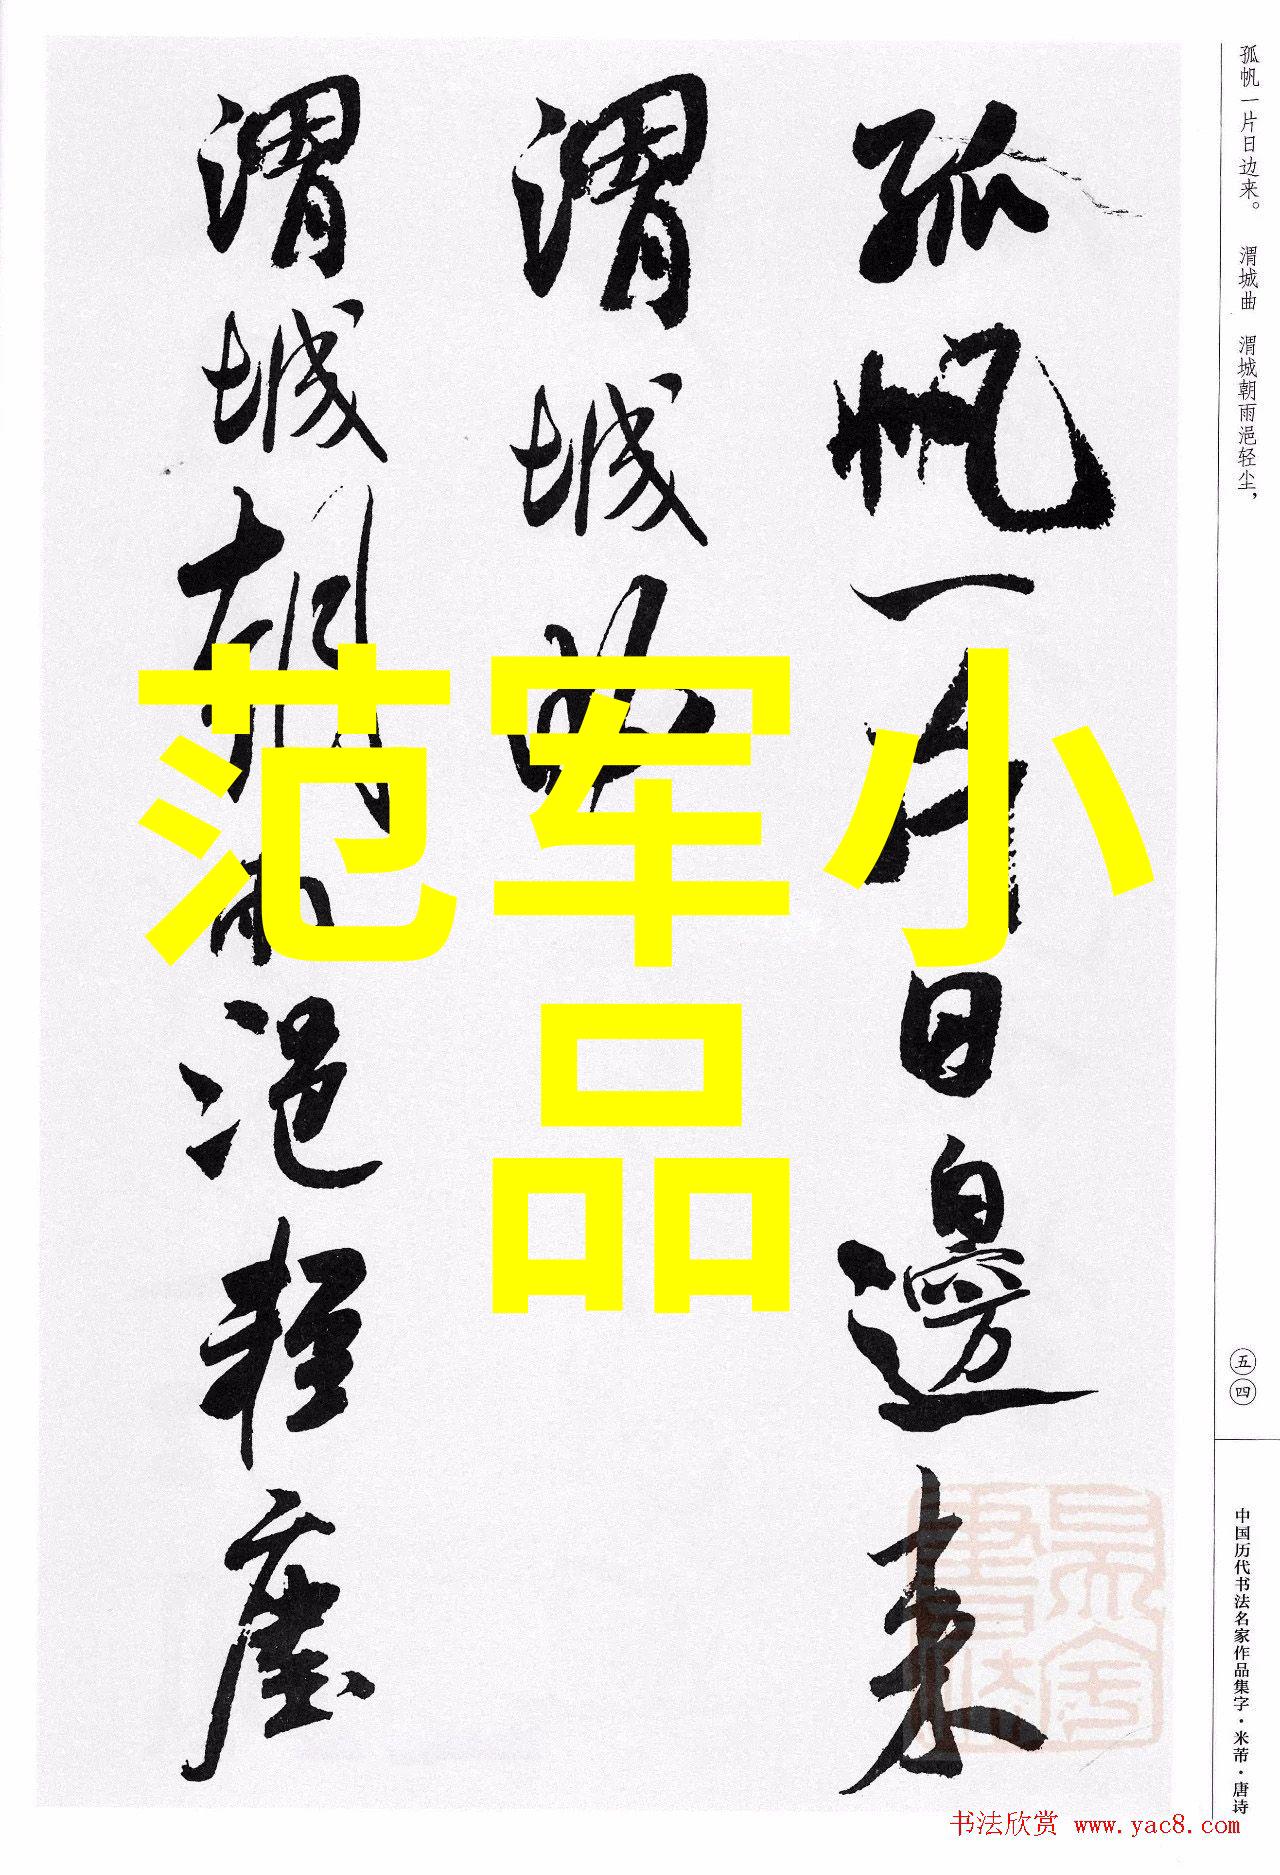 孤帆一片日邊来
渭城曲
渭城朝雨浥輕塵
范军小
品
孤帆一片日边来。 渭城曲 渭城朝雨浥轻尘，
五四
中国历代书法名家作品集字·米芾·唐诗
书法欣赏 www.yac8.com